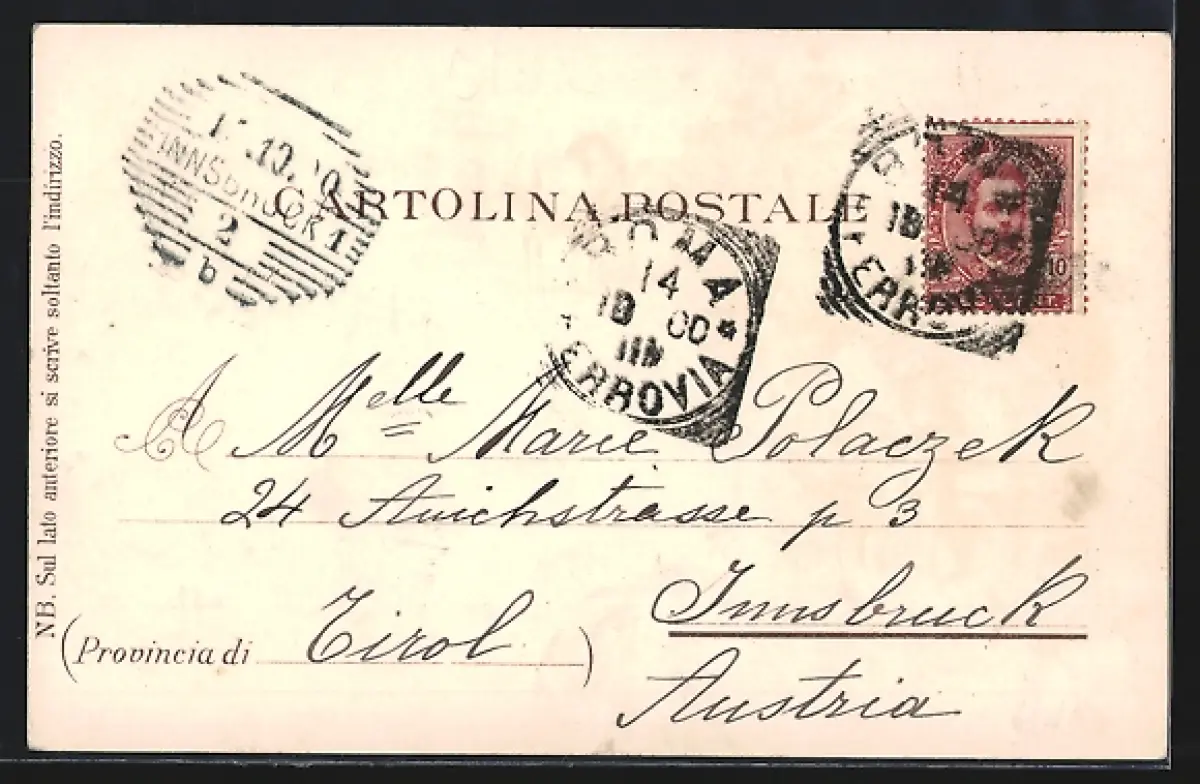 CARTOLINA POSTALE
INNSBRUCK 1
2
b
ROMA
14
10 00
FERROVIA
ROMA
14
10 00
FERROVIA
10
A Melle Marie Polaczek
24 Anichstrasse p 3
Innsbruck
(Provincia di Tirol)
Austria
NB. Sul lato anteriore si scrive soltanto l'indirizzo.